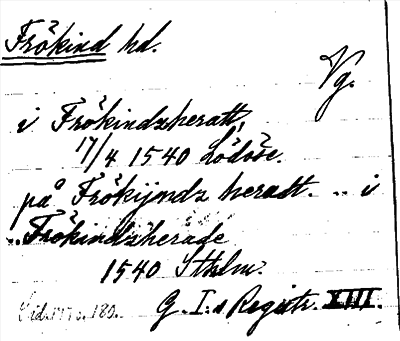 Frökind hd.
Vg.
i Frökindzheratt,
17/4 1540 Lödöse.
på Frökijndz heratt. .. i
..Frökindzherade
1540 Sthlm.
G. I:s Registr. XIII.
Sid. 177 o. 180.